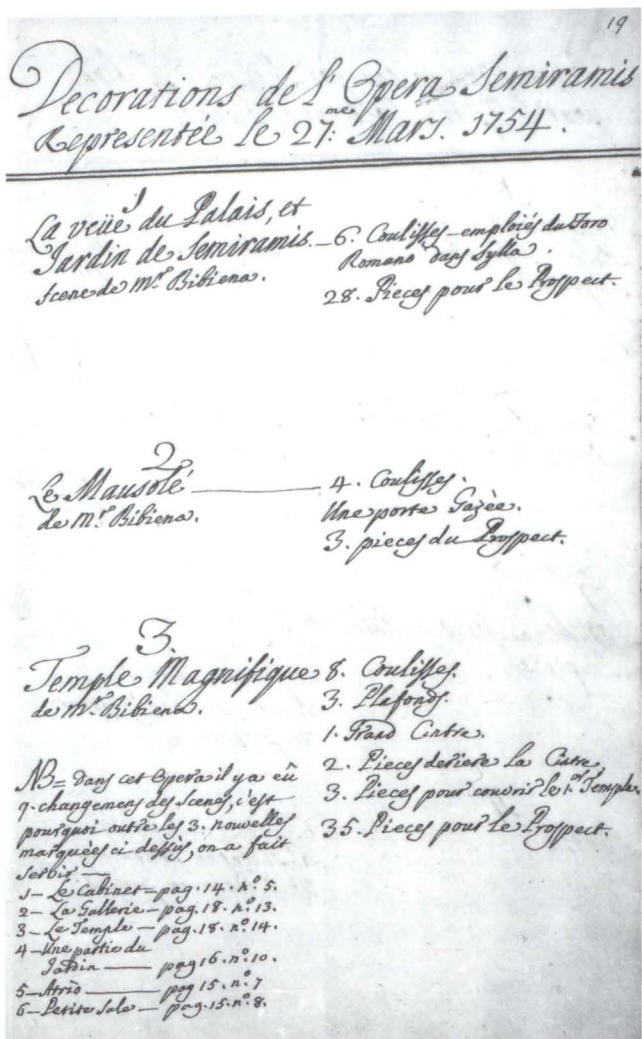 19
Decorations de l'Opera Semiramis
Representée le 27:me Mars. 1754.
1
La veüe du Palais, et
Jardin de Semiramis.
Scene de Mr. Bibiena.
6. Coulisses emploiés du Foro
Romano dans Sylla.
28. Pieces pour le Prospect.
2
Le Mausolé
de Mr. Bibiena.
4. Coulisses.
Une porte Gazèe.
3. pieces du Prospect.
3.
Temple Magnifique
de Mr. Bibiena.
8. Coulisses.
3. Plafonds.
1. Grand Cintre.
2. Pieces deriere la Cintre,
3. Pieces pour couvrir le 1.er Temple.
35. Pieces pour le Prospect.
NB = Dans cet Opera il y a eû
9. changemens des Scenes, c'est
pourquoi outre les 3. nouvelles
marquées ci dessus, on a fait
servir —
1 — Le Cabinet = pag. 14. no. 5.
2 — La Gallerie — pag. 18. no. 13.
3 — Le Temple — pag. 18. no. 14.
4 — Une partie du
Jardin — pag 16. no. 10.
5 — Atrio — pag 15. no. 7
6 — Petite Sale — pag. 15. no. 8.